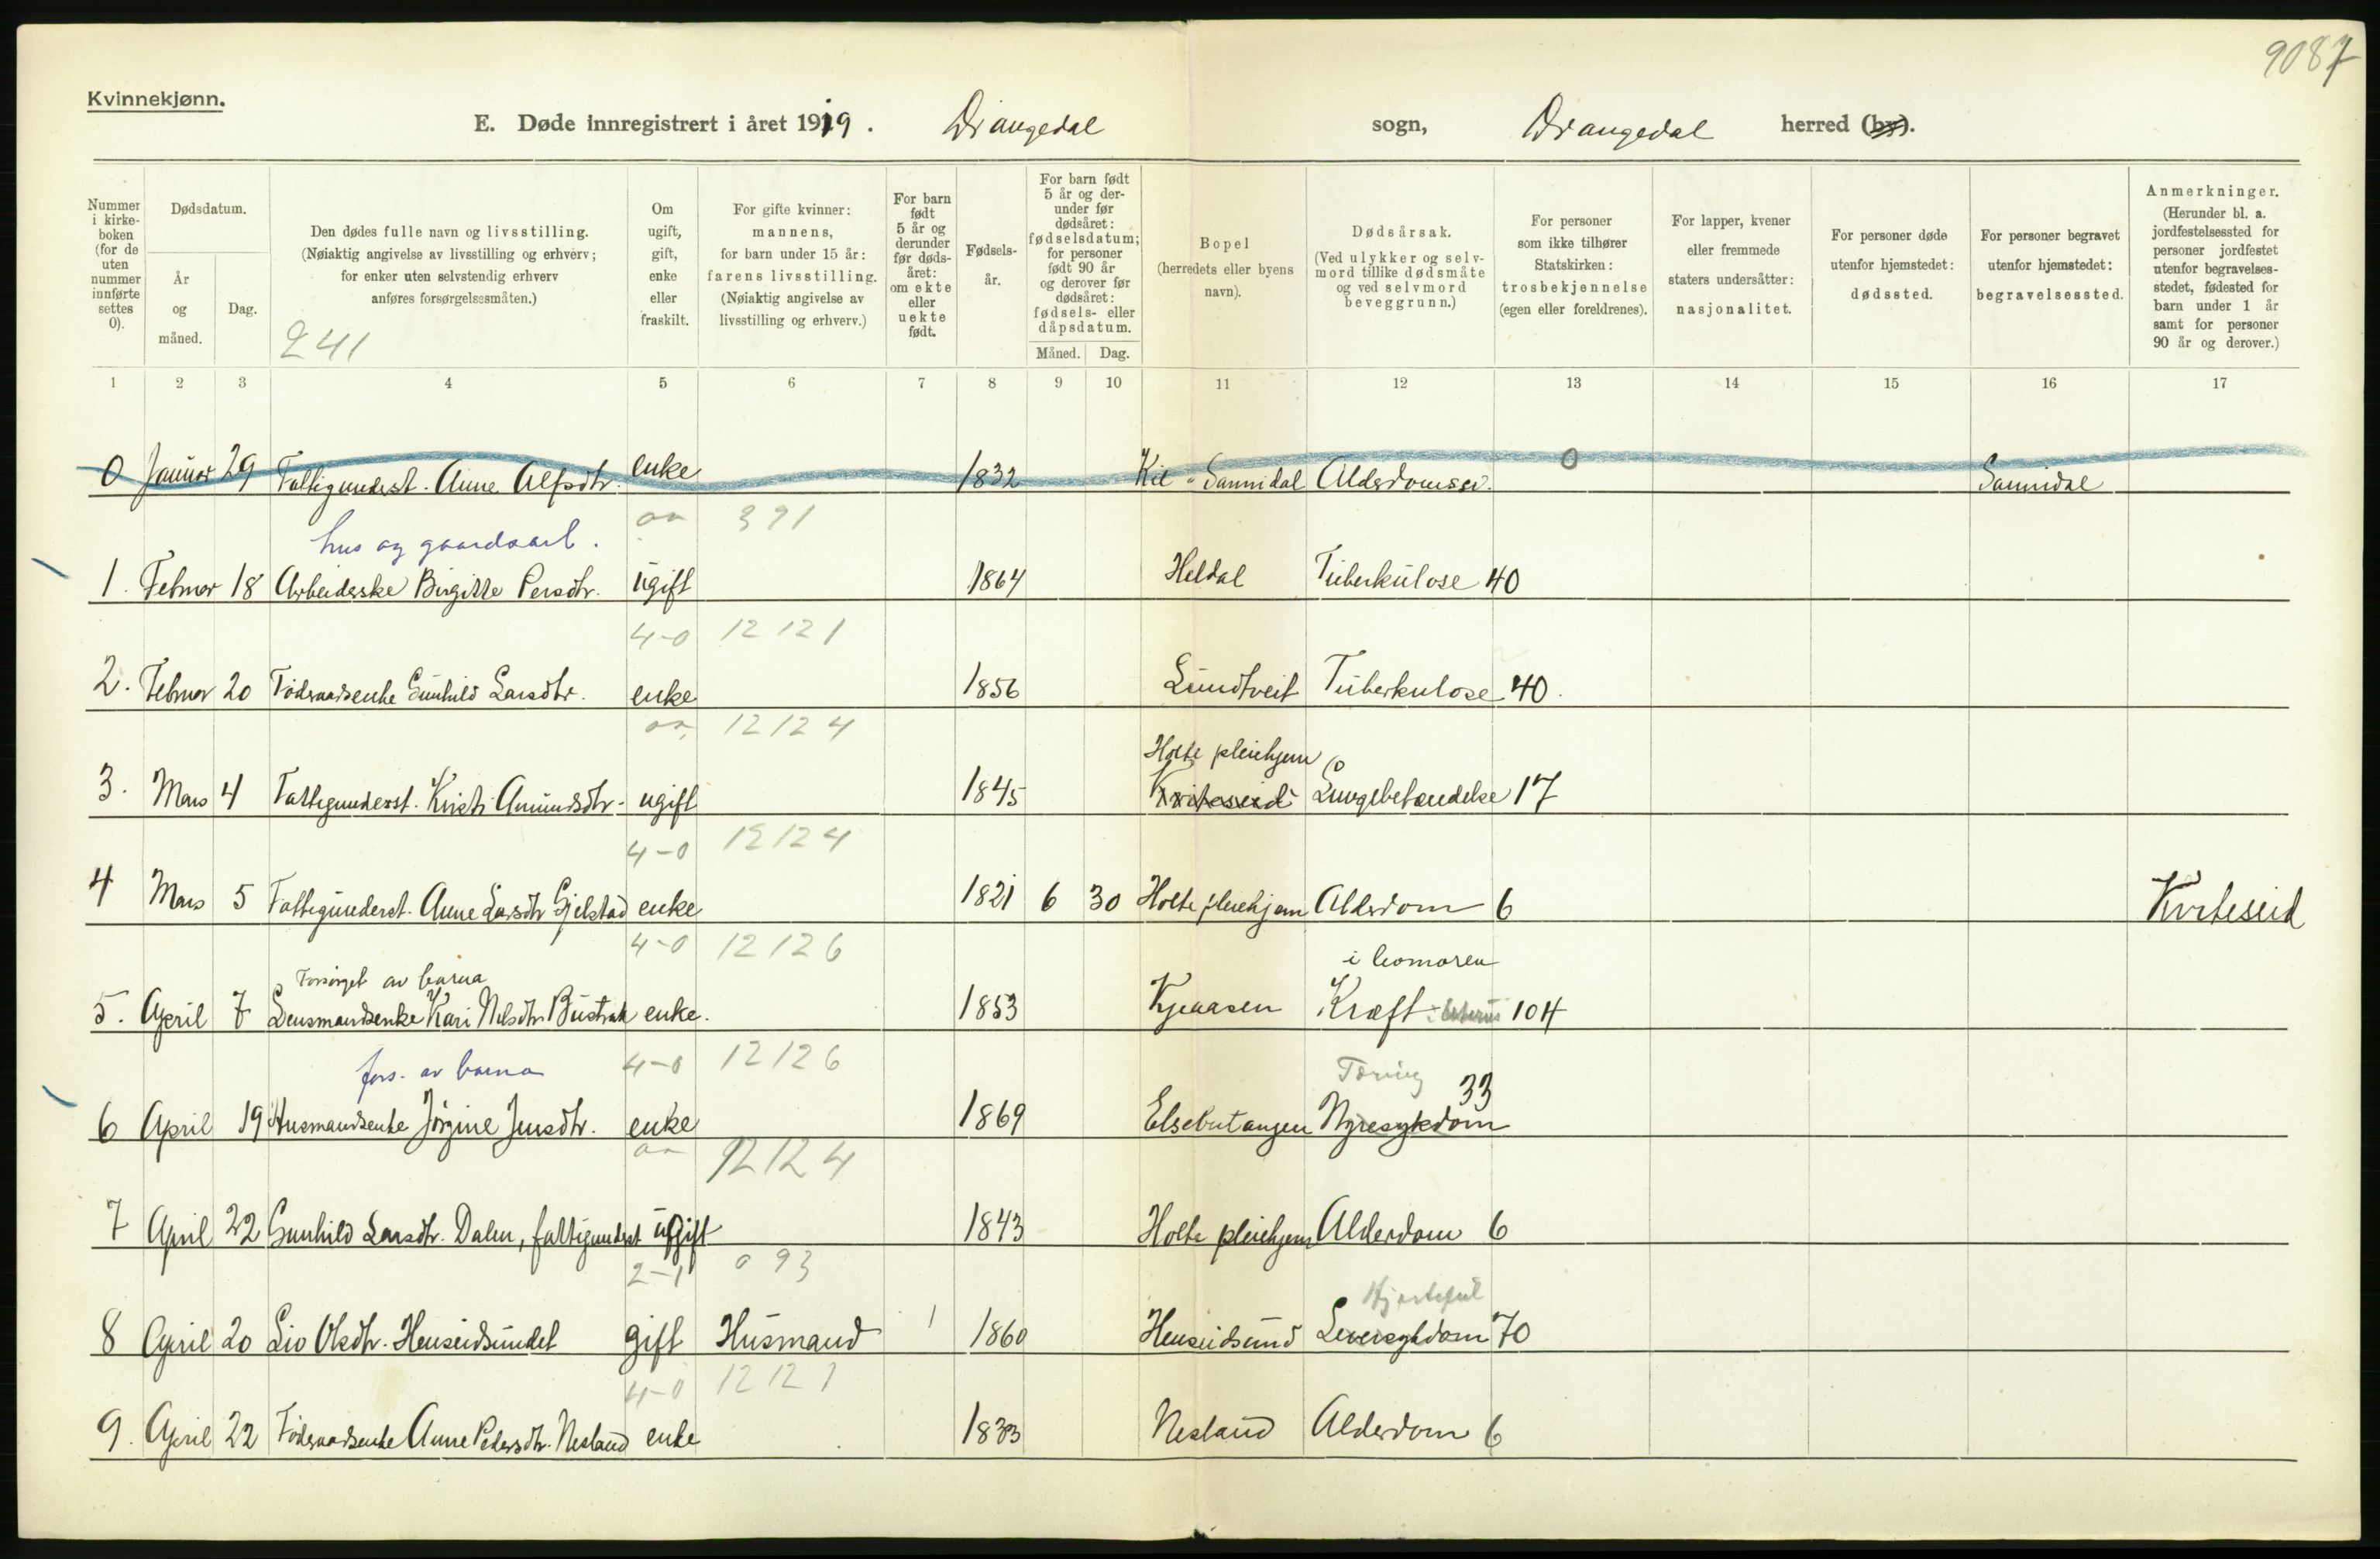 9087
Kvinnekjønn.
E. Døde innregistrert i året 1919. Drangedal sogn, Drangedal herred (by).
Nummer i kirkeboken (for de uten nummer innførte settes 0).
Dødsdatum.
År og måned.
Dag.
Den dødes fulle navn og livsstilling.
(Nøiaktig angivelse av livsstilling og erhverv; for enker uten selvstendig erhverv anføres forsørgelsesmåten.)
241
Om ugift, gift, enke eller fraskilt.
For gifte kvinner: mannens, for barn under 15 år: farens livsstilling.
(Nøiaktig angivelse av livsstilling og erhverv.)
For barn født 5 år og derunder før dødsåret: om ekte eller uekte født.
Fødselsår.
For barn født 5 år og derunder før dødsåret: fødselsdatum; for personer født 90 år og derover før dødsåret: fødsels- eller dåpsdatum.
Måned. Dag.
Bopel (herredets eller byens navn).
Dødsårsak.
(Ved ulykker og selvmord tillike dødsmåte og ved selvmord beveggrunn.)
For personer som ikke tilhører Statskirken: trosbekjennelse (egen eller foreldrenes).
For lapper, kvener eller fremmede staters undersåtter: nasjonalitet.
For personer døde utenfor hjemstedet: dødssted.
For personer begravet utenfor hjemstedet: begravelsessted.
Anmerkninger.
(Herunder bl. a. jordfestelsessted for personer jordfestet utenfor begravelsesstedet, fødested for barn under 1 år samt for personer 90 år og derover.)
1 2 3 4 5 6 7 8 9 10 11 12 13 14 15 16 17
0 Januar 29 Fattigunderst. Anne Alfsdtr. enke 1832 Kil - Sannidal Alderdomssv. 0 Sannidal
391
hus og gaardsarb.
1. Februar 18 Arbeiderske Birgitte Persdtr. ugift 1864 Heldal Tuberkulose 40
4-0 12 12 1
2. Februar 20 Føderaadsenke Gunhild Larsdtr. enke 1856 Lundtveit Tuberkulose 40.
12 12 4
Holte pleiehjem
3. Mars 4 Fattigunderst. Kirsti Amundsdtr. ugift 1845 Kviteseid Lungebetændelse 17
4-0 12 12 4
4 Mars 5 Fattigunderst. Anne Larsdtr Gjelstad enke 1821 6 30 Holte pleiehjem Alderdom 6 Kviteseid
4-0 12 12 6
Forsørget av barna
i livmoren
5. April 7 Lensmandsenke Kari Nilsdtr. Bustrak enke. 1853 Kjeaasen Kræft 104
4-0 12 12 6
fors. av barna
Tæring 33
6 April 19 Husmandsenke Jørgine Jensdtr. enke 1869 Elsebutangen Nyresykdom
12 12 4
7 April 22 Gunhild Larsdtr. Dalen, fattigunderst ugift 1843 Holte pleiehjem Alderdom 6
2-1 093
Hjertefeil
8 April 20 Liv Olsdtr. Henseidsundet gift Husmand 1 1860 Henseidsund Leversykdom 70
4-0 12 12 1
9. April 22 Føderaadsenke Anne Pedersdtr. Nesland enke 1833 Nesland Alderdom 6